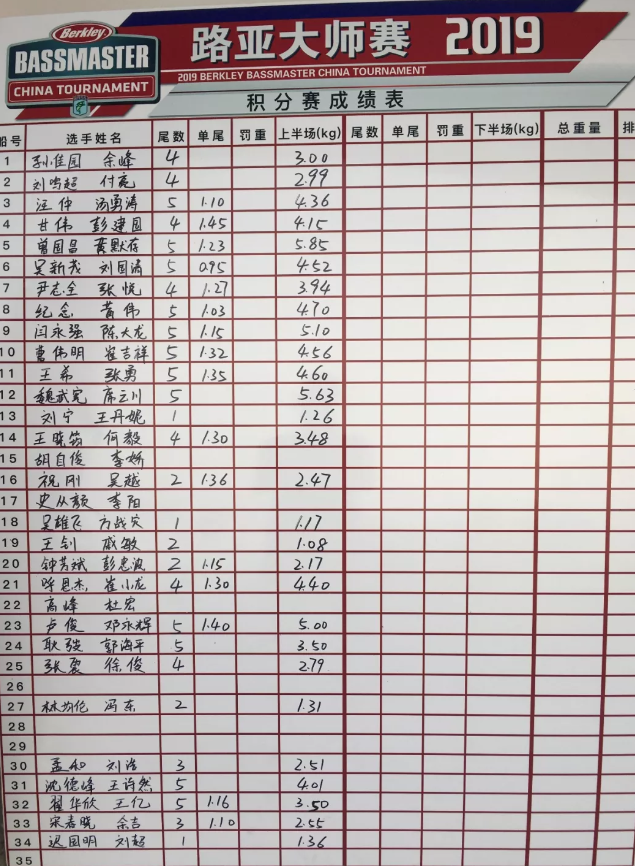 Berkley
BASSMASTER
CHINA TOURNAMENT
路亚大师赛 2019
2019 BERKLEY BASSMASTER CHINA TOURNAMENT
积分赛成绩表
船号 选手姓名 尾数 单尾 罚重 上半场(kg) 尾数 单尾 罚重 下半场(kg) 总重量 排
1 孙佳园 余峰 4 3.00
2 刘鸣超 付亮 4 2.99
3 汪仲 汤勇涛 5 1.10 4.36
4 甘伟 彭建国 4 1.45 4.15
5 曾国昌 黄默存 5 1.23 5.85
6 吴新茂 刘国涛 5 0.95 4.52
7 尹志全 张悦 4 1.27 3.94
8 纪念 黄伟 5 1.03 4.70
9 闫永强 陈大龙 5 1.15 5.10
10 曹伟明 崔吉祥 5 1.32 4.56
11 王希 张勇 5 1.35 4.60
12 魏武宪 席云川 5 5.63
13 刘宁 王丹妮 1 1.26
14 王晓筠 何毅 4 1.30 3.48
15 胡自俊 李娇
16 祝刚 吴越 2 1.36 2.47
17 史从颜 李阳
18 吴雄飞 方战灾 1 1.17
19 王钊 戚敏 2 1.08
20 钟芳斌 彭惠波 2 1.15 2.17
21 呼思杰 崔小龙 4 1.30 4.40
22 高峰 杜宏
23 卢俊 邓永辉 5 1.40 5.00
24 耿强 郭海平 5 3.50
25 张震 徐俊 4 2.79
26
27 林均伦 冯东 2 1.31
28
29
30 孟和 刘浩 3 2.51
31 沈德峰 王许然 5 4.01
32 翟华欣 王亿 5 1.16 3.50
33 宋春晓 余吉 3 1.10 2.55
34 迟国明 刘超 1 1.36
35